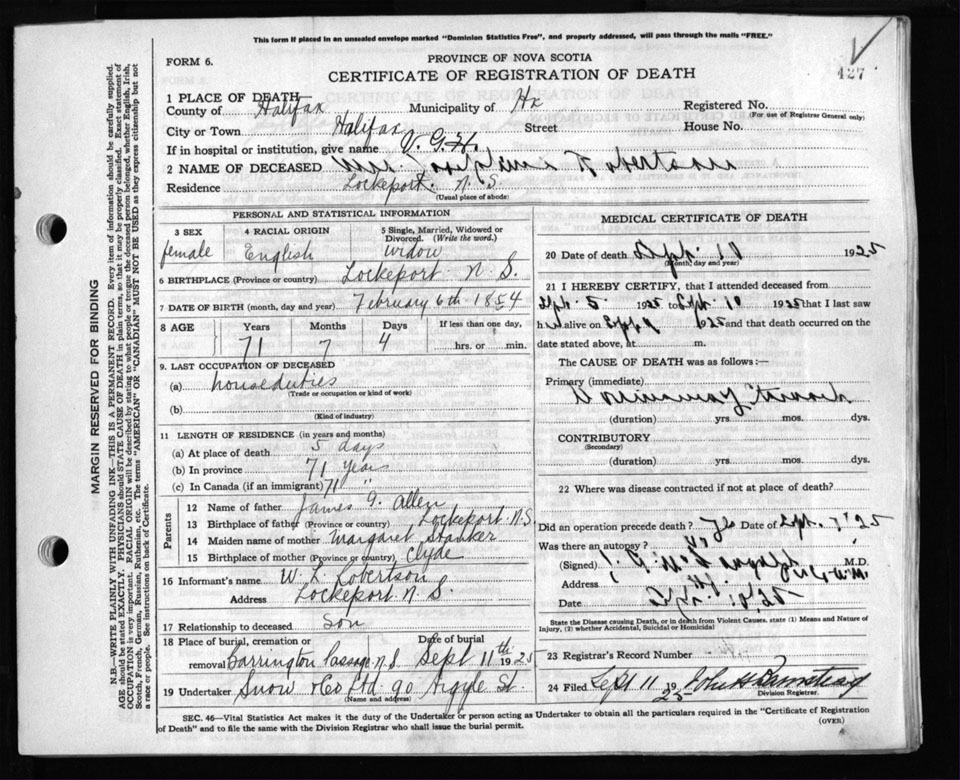 This form if placed in an unsealed envelope marked "Dominion Statistics Free", and properly addressed, will pass through the mails "FREE."
427
FORM 6.
PROVINCE OF NOVA SCOTIA
CERTIFICATE OF REGISTRATION OF DEATH
1 PLACE OF DEATH—
County of Halifax Municipality of Hx Registered No.
(For use of Registrar General only)
City or Town Halifax Street House No.
If in hospital or institution, give name V. G. H.
2 NAME OF DECEASED Robertson
Residence Lockeport. N. S.
(Usual place of abode)
PERSONAL AND STATISTICAL INFORMATION
3 SEX 4 RACIAL ORIGIN 5 Single, Married, Widowed or Divorced. (Write the word.)
female English widow
6 BIRTHPLACE (Province or country) Lockeport N. S.
7 DATE OF BIRTH (month, day and year) February 6th 1854
8 AGE Years Months Days If less than one day,
71 7 4 hrs. or min.
9. LAST OCCUPATION OF DECEASED
(a) house duties
(Trade or occupation or kind of work)
(b)
(Kind of industry)
11 LENGTH OF RESIDENCE (in years and months)
(a) At place of death 5 days
(b) In province 71 years
(c) In Canada (if an immigrant) 71 "
Parents
12 Name of father James G. Allen
13 Birthplace of father (Province or country) Lockeport N.S.
14 Maiden name of mother Margaret
15 Birthplace of mother (Province or country) Clyde
16 Informant's name W. L. Robertson
Address Lockeport N. S.
17 Relationship to deceased Son
18 Place of burial, cremation or removal Barrington Passage N.S. Date of burial Sept 11th 1925
19 Undertaker Snow & Co Ltd. 90 Argyle St.
(Name and address)
MEDICAL CERTIFICATE OF DEATH
20 Date of death Sept. 1925
(Month, day and year)
21 I HEREBY CERTIFY, that I attended deceased from
Sept. 5 1925 to Sept. 10 1925 that I last saw
her alive on Sept and that death occurred on the
date stated above, at m.
The CAUSE OF DEATH was as follows:—
Primary (immediate)
(duration) yrs. mos. dys.
CONTRIBUTORY
(Secondary)
(duration) yrs. mos. dys.
22 Where was disease contracted if not at place of death?
Did an operation precede death? Yes Date of Sept. 7' 25
Was there an autopsy? No
(Signed) M.D.
Address
Date
State the Disease causing Death, or in death from Violent Causes. state (1) Means and Nature of Injury, (2) whether Accidental, Suicidal or Homicidal
23 Registrar's Record Number
24 Filed Sept 11 1925 John H Barnstead
Division Registrar.
SEC. 46—Vital Statistics Act makes it the duty of the Undertaker or person acting as Undertaker to obtain all the particulars required in the "Certificate of Registration
of Death" and to file the same with the Division Registrar who shall issue the burial permit.
(OVER)
MARGIN RESERVED FOR BINDING
N.B.—WRITE PLAINLY WITH UNFADING INK—THIS IS A PERMANENT RECORD. Every item of information should be carefully supplied.
AGE should be stated EXACTLY. PHYSICIANS should STATE CAUSE OF DEATH in plain terms, so that it may be properly classified. Exact statement of
OCCUPATION is very important. RACIAL ORIGIN will be described by stating to what people or tongue the deceased person belonged, whether English, Irish,
Scotch, French, German, Russian, Ruthenian, etc. The terms "AMERICAN" OR "CANADIAN" MUST NOT BE USED as they express citizenship but not
a race or people. See instructions on back of Certificate.